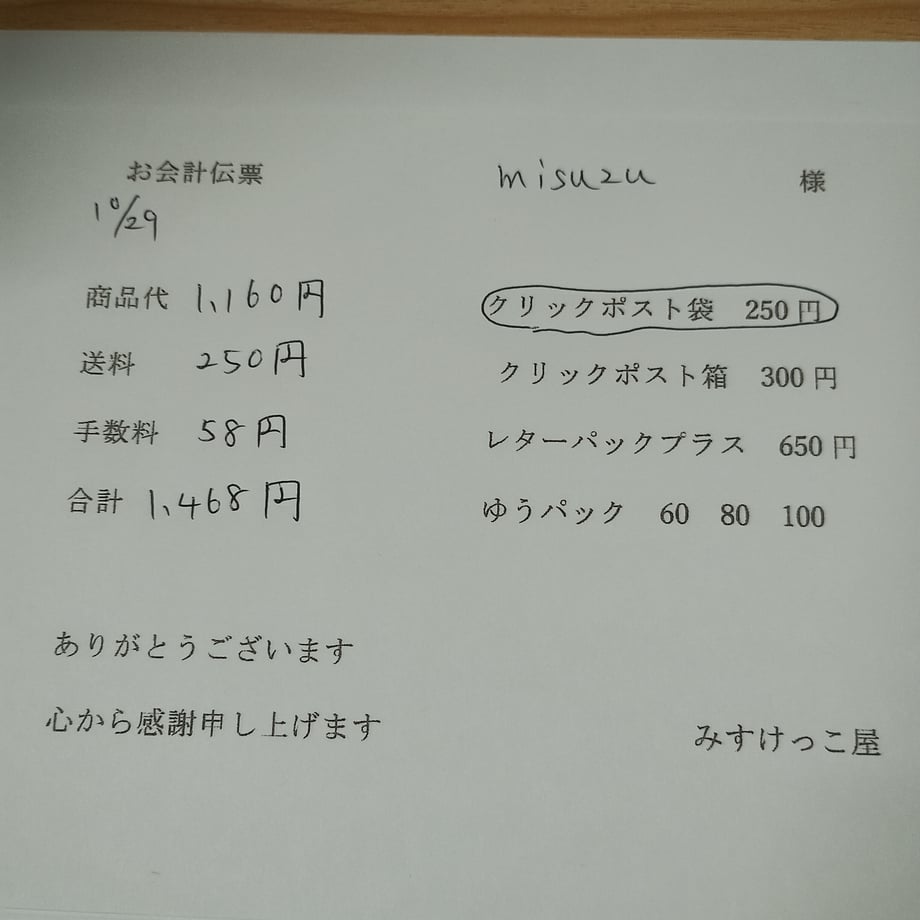 お会計伝票
10/29
商品代 1,160円
送料 250円
手数料 58円
合計 1,468円
ありがとうございます
心から感謝申し上げます
misuzu 様
クリックポスト袋 250円
クリックポスト箱 300円
レターパックプラス 650円
ゆうパック 60 80 100
みすけっこ屋